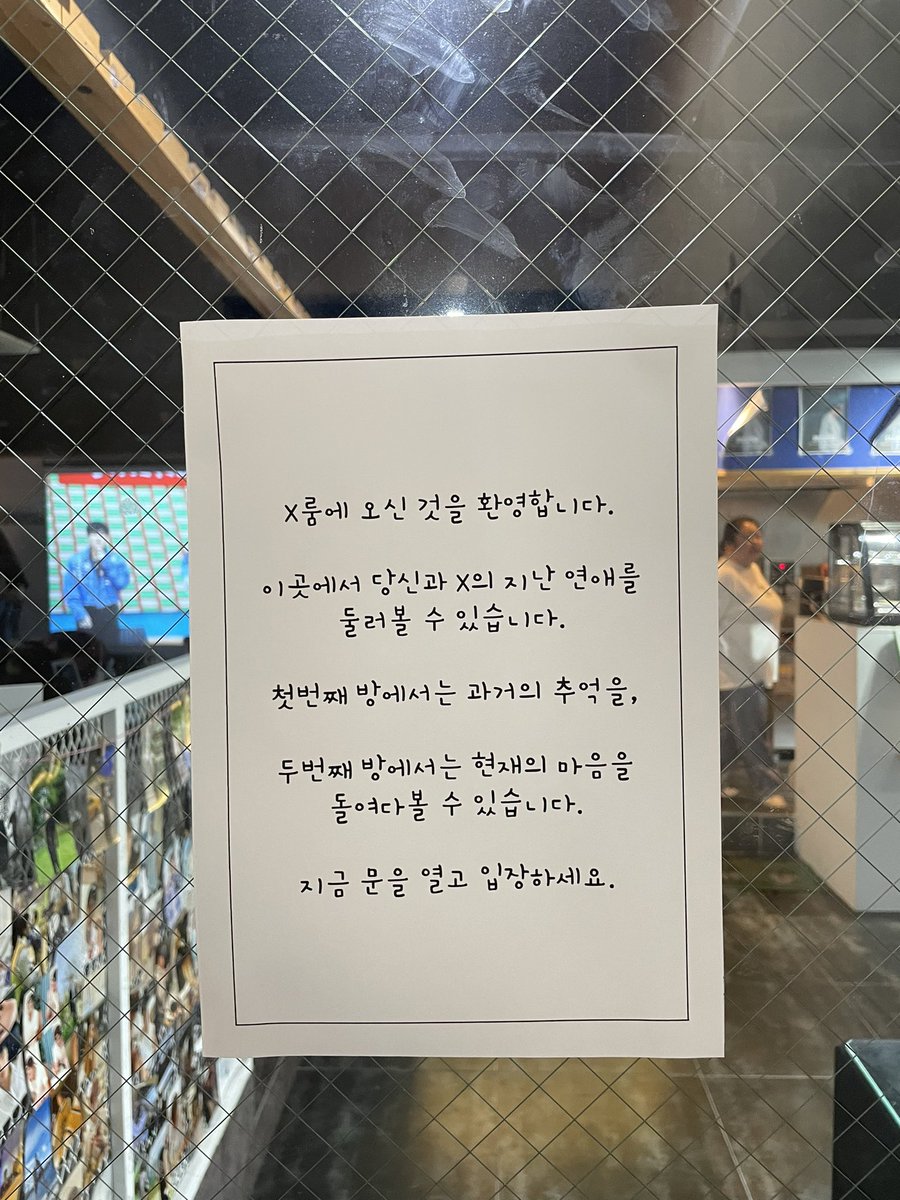 X룸에 오신 것을 환영합니다.
이곳에서 당신과 X의 지난 연애를
둘러볼 수 있습니다.
첫번째 방에서는 과거의 추억을,
두번째 방에서는 현재의 마음을
돌여다볼 수 있습니다.
지금 문을 열고 입장하세요.